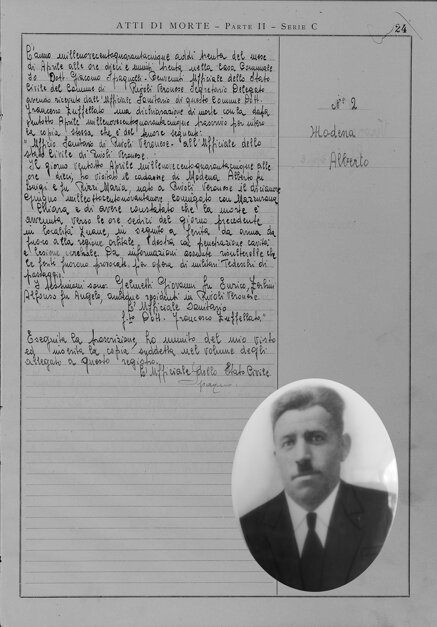 ATTI DI MORTE – PARTE II – SERIE C
24
L'anno millenovecentoquarantacinque addì trenta del mese
di Aprile alle ore dieci e minuti trenta nella Casa Comunale.
Io Dott. Giacomo Spagnolli Ufficiale dello Stato
Civile del Comune di Rivoli Veronese Segretario Delegato
avendo ricevuto dall'Ufficiale Sanitario di questo Comune Dott.
Francesco Zuffellato una dichiarazione di morte con la data
ventotto Aprile millenovecentoquarantacinque trascrivo per intero
la copia stessa che è del tenore seguente:
"Ufficio Sanitario di Rivoli Veronese. All'Ufficiale dello
stato Civile di Rivoli Veronese.
Il giorno ventotto Aprile millenovecentoquarantacinque alle
ore dieci, ho visitato il cadavere di Modena Alberto fu
Luigi e fu Maria, nato a Rivoli Veronese il diciannove
Giugno milleottocentonovantanove coniugato con
Chiara e di avere constatato che la morte è
avvenuta verso le ore sedici del giorno precedente
in località Zuane, in seguito a ferita da arma da
fuoco alla regione orbitale destra con penetrazione cavità
e lesione cerebrale. Da informazioni assunte risulterebbe che
le ferite furono provocate per opera di militari Tedeschi di
passaggio.
I testimoni sono: Gelmetti Giovanni fu Enrico, Zerbini
Alfonso fu Angelo, ambedue residenti in Rivoli Veronese
L'Ufficiale Sanitario
f.to Dott. Francesco Zuffellato."
Eseguita la trascrizione, ho munito del mio visto
ed inserita la copia suddetta nel volume degli
allegati a questo registro.
L'Ufficiale dello Stato Civile.
N° 2
Modena
Alberto